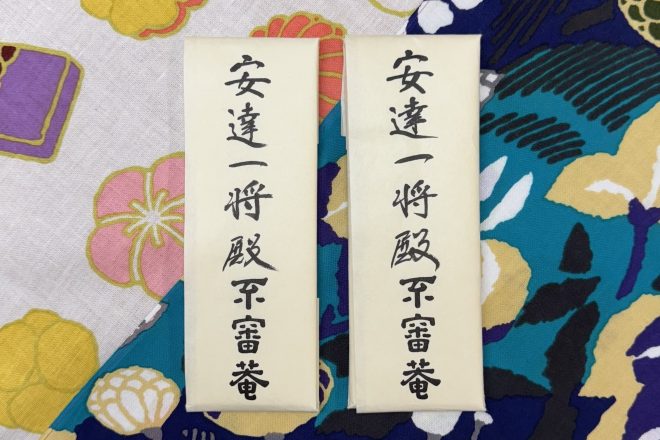 安達一将殿不審菴
安達一将殿不審菴